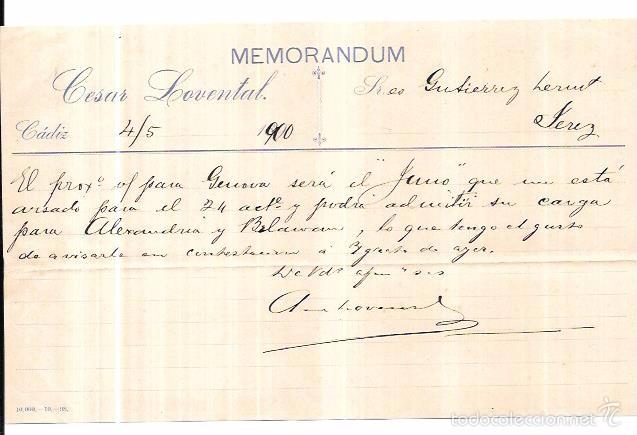 MEMORANDUM
Cesar Lovental.
Sres Gutierrez
Cádiz 4/5 1900
Jerez
El proxº v/ para Genova será el "Juno" que me está
avisado para el 24 actº y podra admitir su carga
para Alexandria y, lo que tengo el gusto
de avisarle en contestacion á grata de ayer.
De Vds afmº s s
10,000.—10.—98.
todocoleccion.net